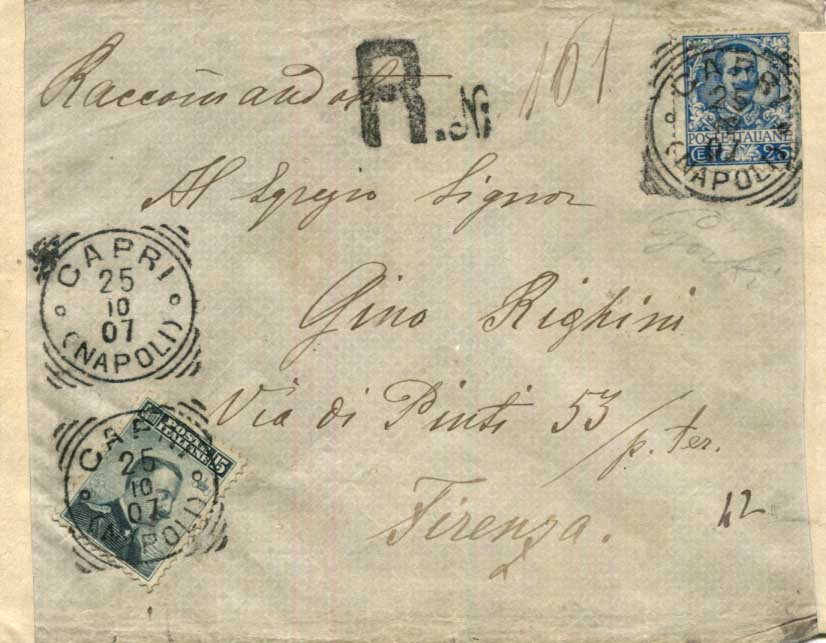 Raccomandata
R. N.
161
CAPRI
25
10
07
(NAPOLI)
POSTE ITALIANE
CENT. 25
Al Egregio Signor
CAPRI
25
10
07
(NAPOLI)
Gino Righini
Via di Pinti 53
p. ter.
CAPRI
25
10
07
(NAPOLI)
POSTE
ITALIANE
15
Firenza.
42